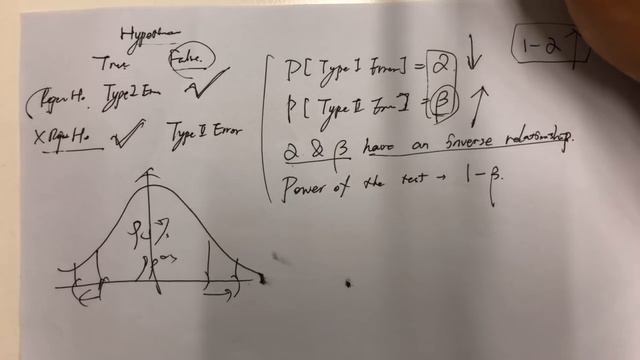 Hypothesis
True False.
Reject Ho. Type I Error ✓
X Reject Ho ✓ Type II Error
P[Type I Error] = α ↓
P[Type II Error] = β ↑
α & β have an inverse relationship.
Power of the test → 1-β.
1-α ↑